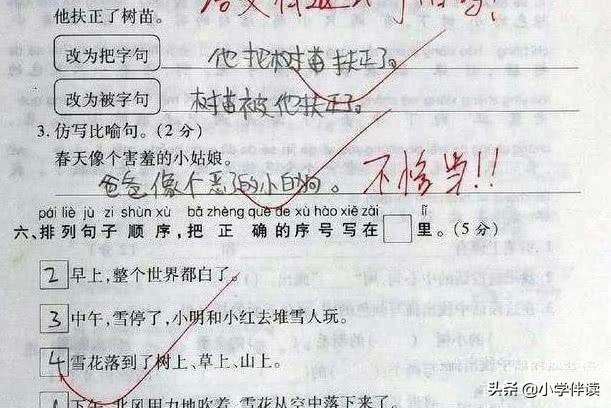 他扶正了树苗。
改为把字句 他把树苗扶正了。
改为被字句 树苗被他扶正了。
3. 仿写比喻句。(2 分)
春天像个害羞的小姑娘。
爸爸像个恶了的小白狗。 不恰当!!
pái liè jù zi shùn xù bǎ zhèng què de xù hào xiě zài lǐ
六、排列句子 顺序,把 正 确的序号写在 里。(5 分)
2 早上,整个世界都白了。
3 中午,雪停了,小明和小红去堆雪人玩。
4 雪花落到了树上、草上、山上。
1 下午,北风用力地吹着,雪花从空中落下来了。
头条 @小学伴读